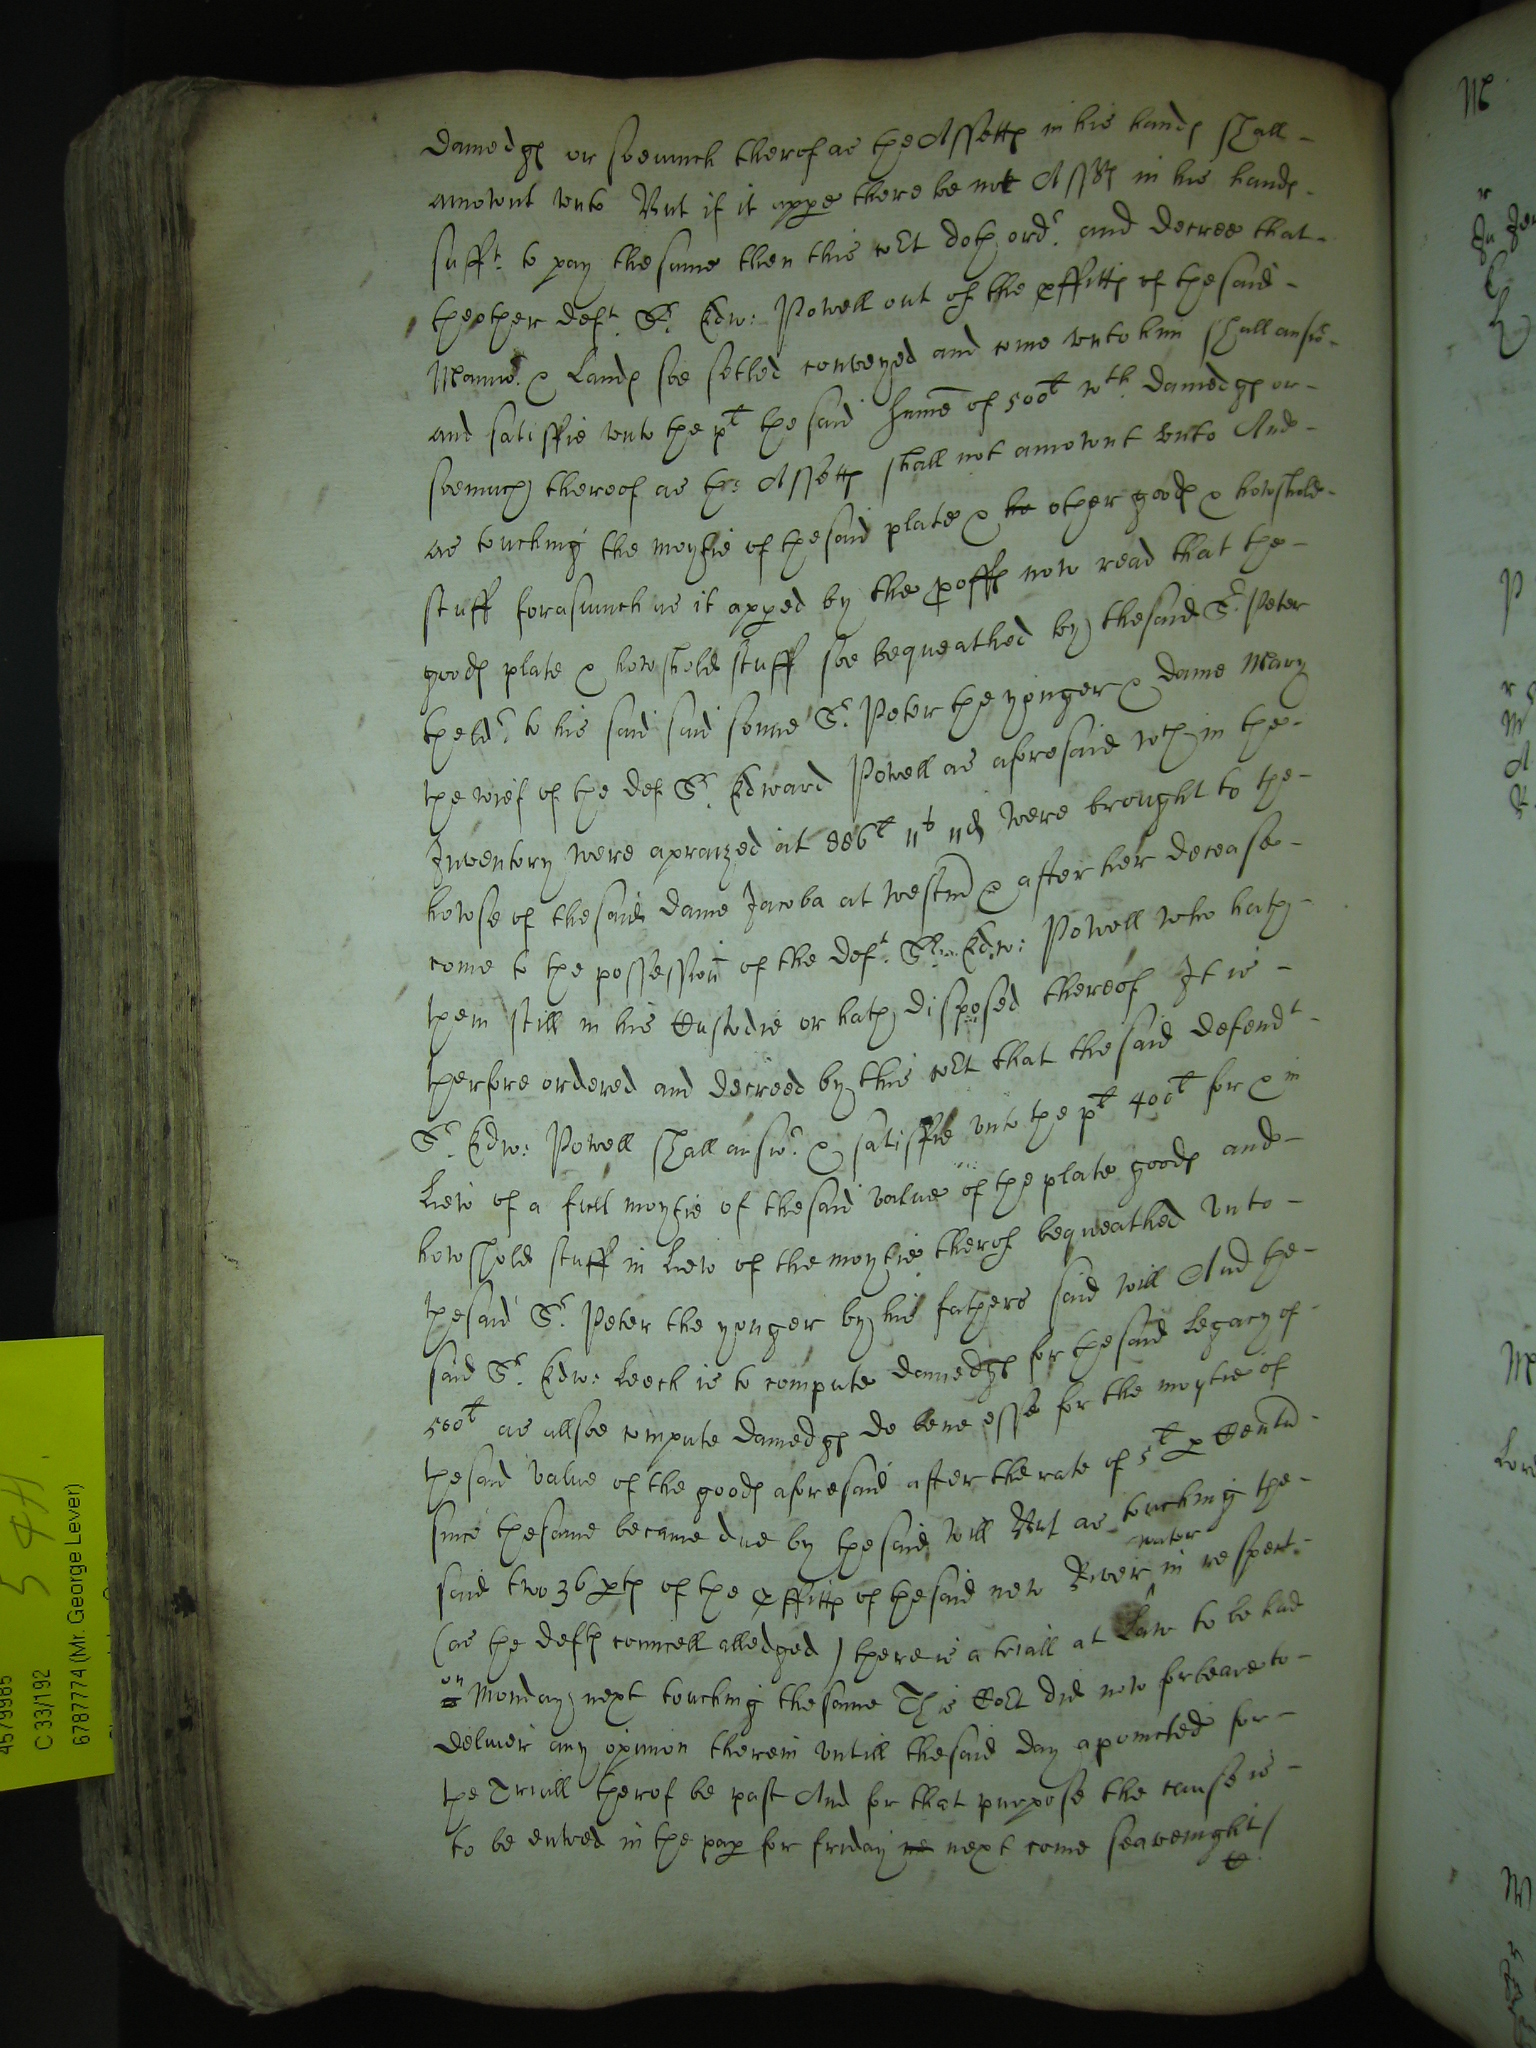 damedgs or soemuch therof as the Assetts in his hands shall -
amownt unto But if it appe there be not Assts in his hands -
sufft. to pay thesame then this coět doth ordr. and decree that -
theother deft. Sr. Edw: Powell out of the pffitts of thesaid -
Mannor & Lands soe setled conveyed and come unto him shall answr -
and satisfie unto the plt the said Summe of 500l wth. damedgs or -
soemuch thereof as the Assetts shall not amownt unto And -
as touching the moytie of thesaid plate & he other goods & howshold -
stuff forasmuch as it apped by the proffs now read that the -
goods plate & howshold stuff soe bequeathed by thesaid Sr. Peter
theldr. to his said said sonne Sr. Peter the yonger & dame Mary
the wief of the def Sr. Edward Powell as aforesaid wch in the -
Inventory were apraized at 886l 11s 11d were brought to the -
howse of thesaid dame Jacoba at westm & after her decease -
come to the possession of the deft. Sr. Edw: Powell who hath -
them still in his Custodie or hath disposed thereof It is -
therfore ordered and decreed by this coět that thesaid defendt -
Sr. Edw: Powell shall answr. & satisfie unto the plt 400l for & in
Liew of a full moytie of thesaid value of the plate goods and -
howshold stuff in Liew of the moytie therof bequeathed unto -
thesaid Sr. Peter the yonger by his fathers said will And the -
said Sr. Edw: Leech is to compute damedgs for thesaid Legacy of -
500l as allsoe compute damedgs de bene esse for the moytie of
thesaid value of the goods aforesaid after the rate of 5l p Centu -
since thesame became due by thesaid will But as touching the -
said two 36 pts of the pffitts of thesaid new River water in respect -
(as the defts councell alledged) there is a triall at Law to be had
on Monday next touching thesame This Coět did now forbeare to -
deliver any opinion therein untill thesaid day apointed for -
the Triall therof be past And for that purpose the cause is -
to be entred in the pap for friday ne next come seavenight /
4579985
C 33/192
6787774 (Mr. George Lever)